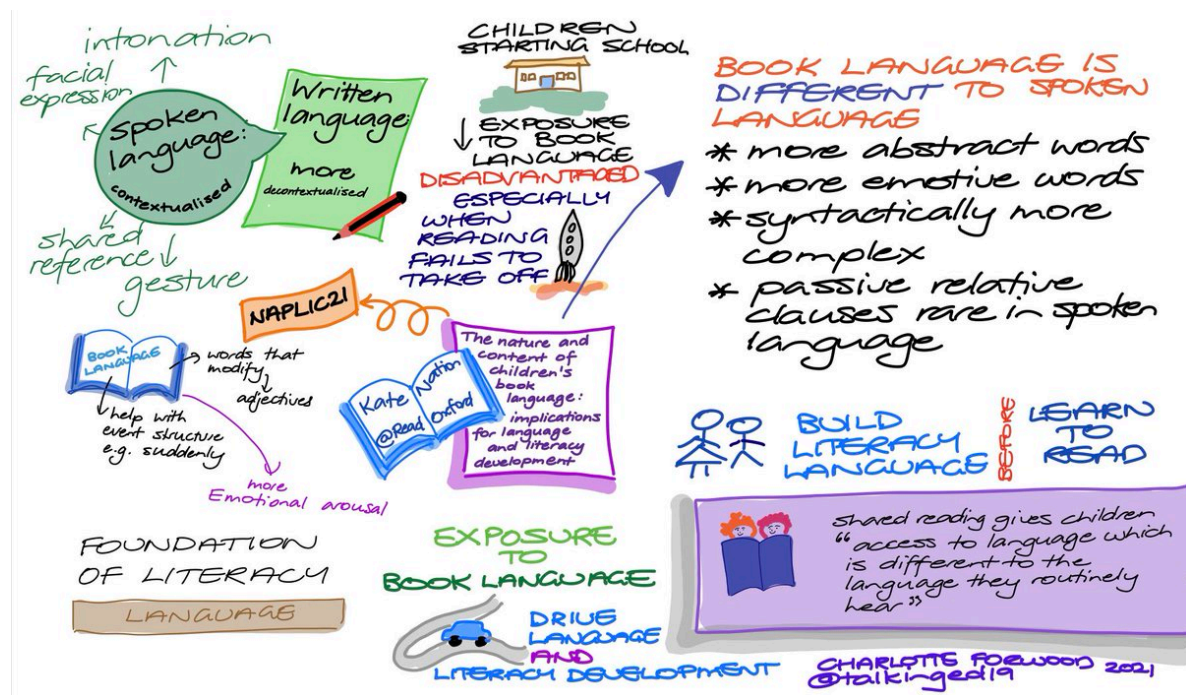 intonation
facial
expression
spoken
language:
contextualised
shared
reference
gesture
Written
language:
more
decontextualised
CHILDREN
STARTING SCHOOL
↓ EXPOSURE
TO BOOK
LANGUAGE
DISADVANTAGED
ESPECIALLY
WHEN
READING
FAILS TO
TAKE OFF
BOOK LANGUAGE IS
DIFFERENT TO SPOKEN
LANGUAGE
* more abstract words
* more emotive words
* syntactically more
complex
* passive relative
clauses rare in spoken
language
NAPLIC21
BOOK
LANGUAGE
words that
modify
adjectives
help with
event structure
e.g. suddenly
more
Emotional arousal
Kate Nation
@Read Oxford
The nature and
content of
children's
book
language:
implications
for language
and literacy
development
BUILD
LITERACY
LANGUAGE
BEFORE
LEARN
TO
READ
FOUNDATION
OF LITERACY
LANGUAGE
EXPOSURE
TO
BOOK LANGUAGE
DRIVE
LANGUAGE
AND
LITERACY DEVELOPMENT
shared reading gives children
"access to language which
is different to the
language they routinely
hear"
CHARLOTTE FORWOOD 2021
@talkinged19